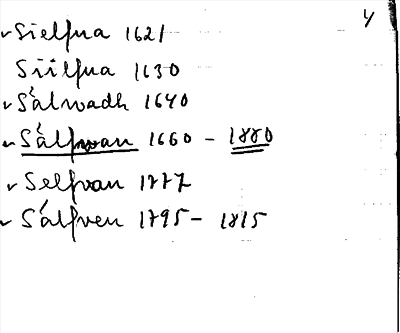 4
v Sielfua 1621
Siilfua 1630
v Sálwadh 1640
v Sálfwan 1660 - 1880
v Selfvan 1777
v Sálfven 1795 - 1815